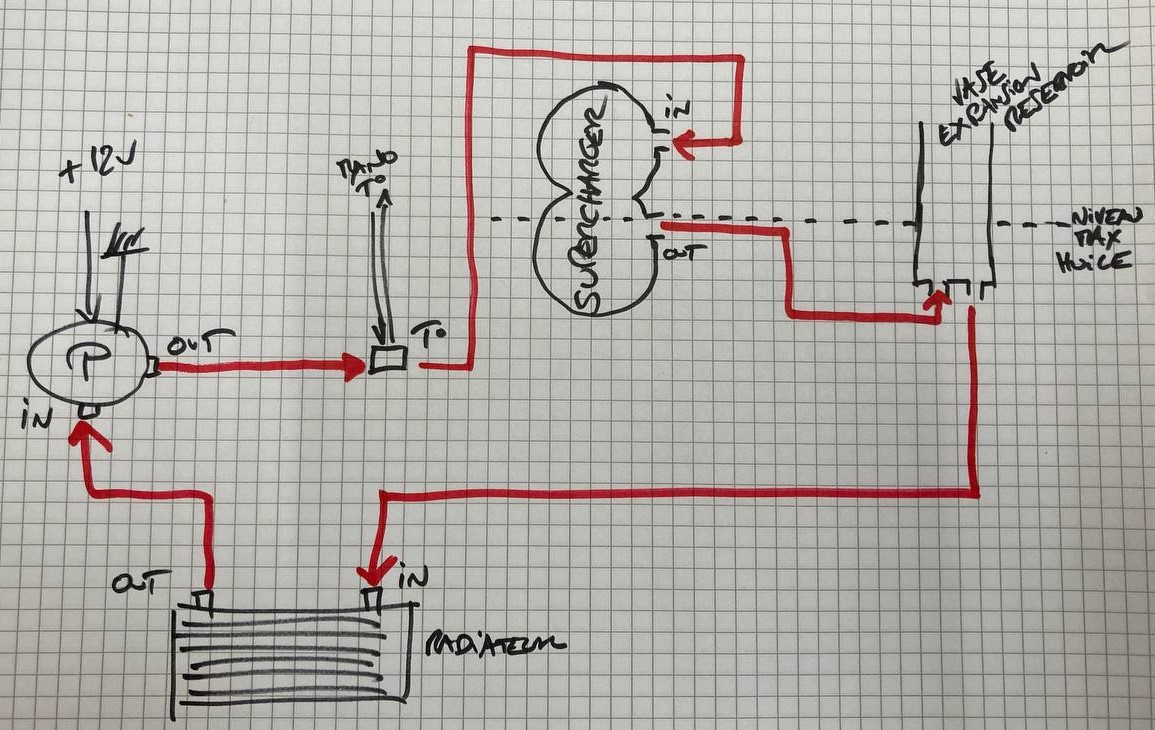 VASE
EXPANSION
RESERVOIR
+12V
MANO
T°
SUPERCHARGER
IN
OUT
NIVEAU
MAX
HUILE
P
OUT
T°
IN
OUT
IN
RADIATEUR